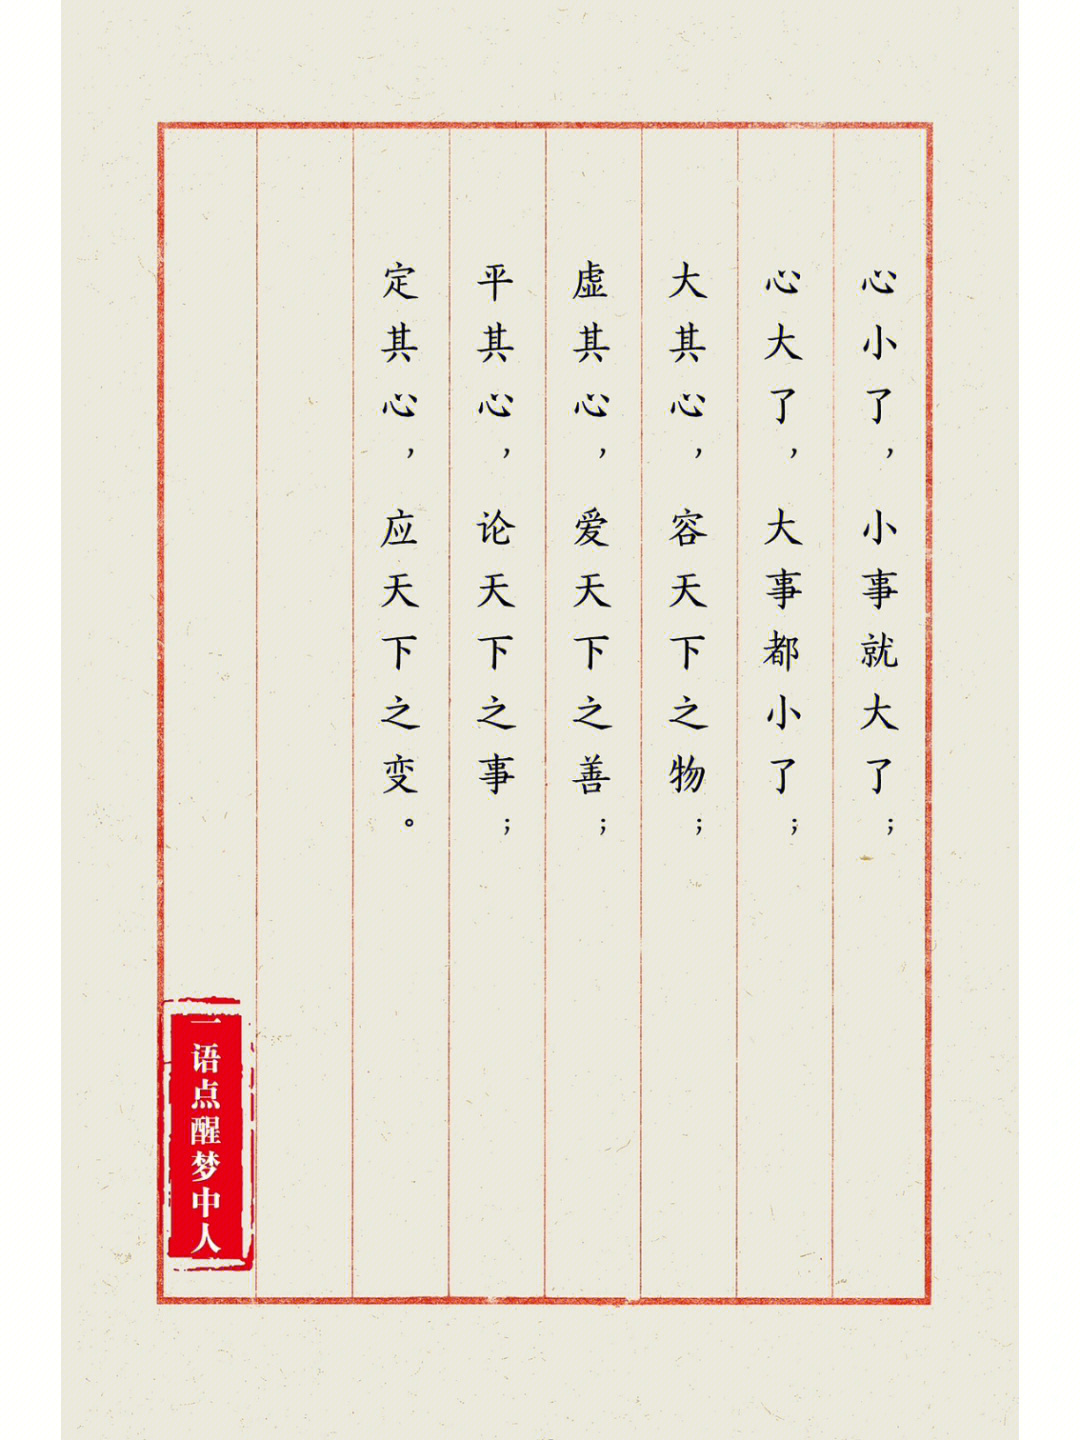 心小了，小事就大了；
心大了，大事都小了；
大其心，容天下之物；
虚其心，爱天下之善；
平其心，论天下之事；
定其心，应天下之变。
一语点醒梦中人